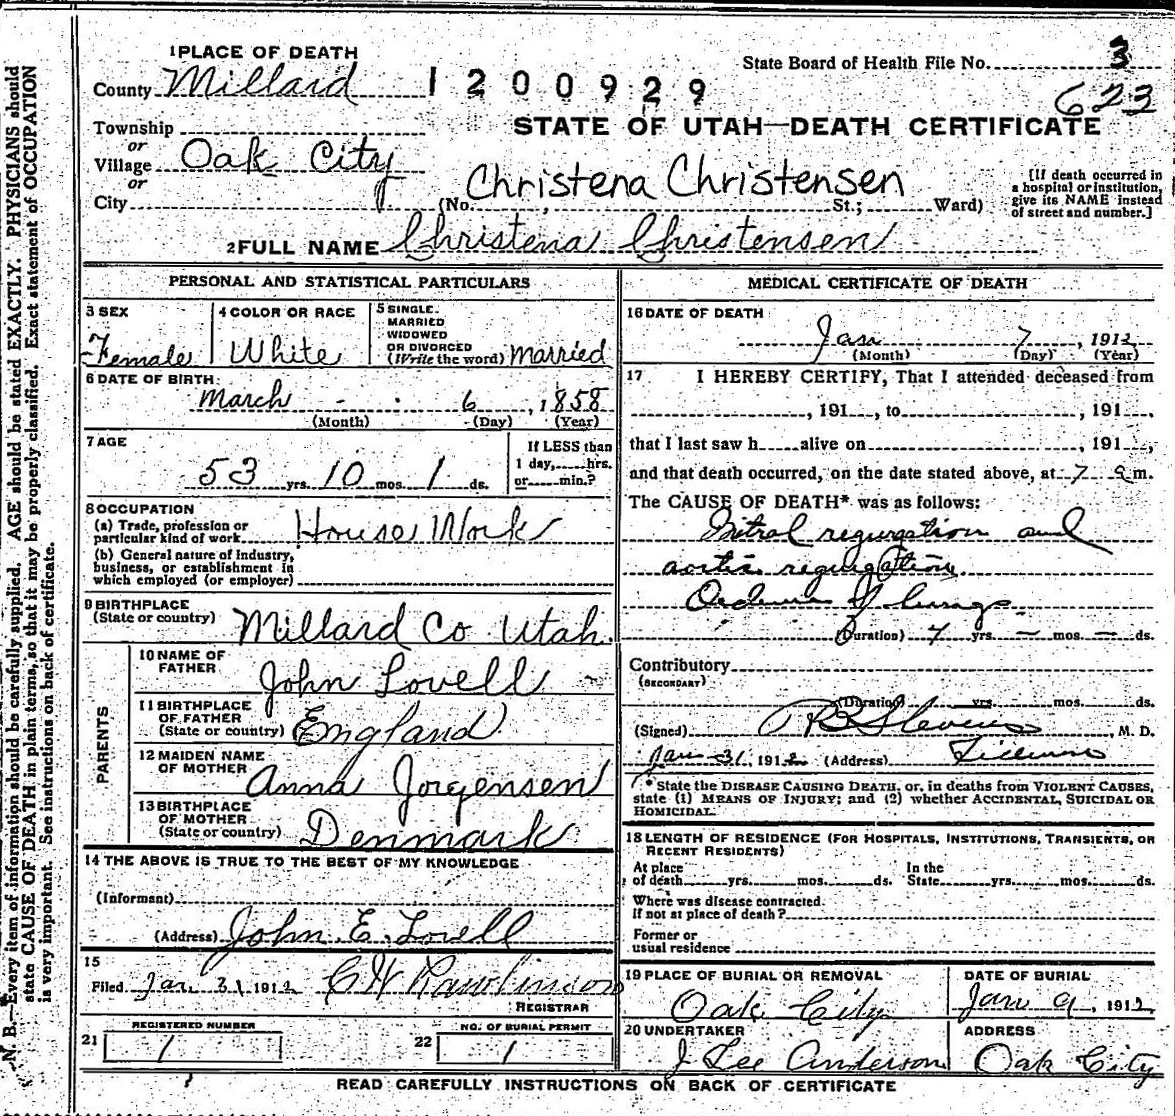 1 PLACE OF DEATH
County Millard
1200929
State Board of Health File No. 3
623
Township
or
Village Oak City
or
City
STATE OF UTAH—DEATH CERTIFICATE
Christena Christensen
(No. , St.; Ward)
[If death occurred in a hospital or institution, give its NAME instead of street and number.]
2 FULL NAME Christena Christensen
PERSONAL AND STATISTICAL PARTICULARS
3 SEX
Female
4 COLOR OR RACE
White
5 SINGLE
MARRIED
WIDOWED
OR DIVORCED
(Write the word) married
6 DATE OF BIRTH
March 6, 1858
(Month) (Day) (Year)
7 AGE
53 yrs. 10 mos. 1 ds.
If LESS than
1 day, hrs.
or min.?
8 OCCUPATION
(a) Trade, profession or
particular kind of work House Work
(b) General nature of industry,
business, or establishment in
which employed (or employer)
9 BIRTHPLACE
(State or country) Millard Co Utah.
PARENTS
10 NAME OF
FATHER John Lovell
11 BIRTHPLACE
OF FATHER
(State or country) England
12 MAIDEN NAME
OF MOTHER Anna Jorgensen
13 BIRTHPLACE
OF MOTHER
(State or country) Denmark
14 THE ABOVE IS TRUE TO THE BEST OF MY KNOWLEDGE
(Informant)
(Address) John E. Lovell
15
Filed Jan 31 1912 C W Rawlinson
REGISTRAR
21 REGISTERED NUMBER
1
22 NO. OF BURIAL PERMIT
1
MEDICAL CERTIFICATE OF DEATH
16 DATE OF DEATH
Jan 7, 1912
(Month) (Day) (Year)
17 I HEREBY CERTIFY, That I attended deceased from
, 191 , to , 191 ,
that I last saw h alive on , 191 ,
and that death occurred, on the date stated above, at 7 a m.
The CAUSE OF DEATH* was as follows:
Mitral regurgation and
aortic regurgation
of lungs.
(Duration) 7 yrs. — mos. — ds.
Contributory
(SECONDARY)
(Duration) yrs. mos. ds.
(Signed) R B Stevens, M. D.
Jan 31, 1912 (Address) Fillmore
* State the DISEASE CAUSING DEATH, or, in deaths from VIOLENT CAUSES,
state (1) MEANS OF INJURY; and (2) whether ACCIDENTAL, SUICIDAL OR
HOMICIDAL.
18 LENGTH OF RESIDENCE (FOR HOSPITALS, INSTITUTIONS, TRANSIENTS, OR
RECENT RESIDENTS)
At place In the
of death yrs. mos. ds. State yrs. mos. ds.
Where was disease contracted
if not at place of death?
Former or
usual residence
19 PLACE OF BURIAL OR REMOVAL
Oak City
DATE OF BURIAL
Jan 9, 1912
20 UNDERTAKER
J Lee Anderson
ADDRESS
Oak City
READ CAREFULLY INSTRUCTIONS ON BACK OF CERTIFICATE
N. B.—Every item of information should be carefully supplied. AGE should be stated EXACTLY. PHYSICIANS should
state CAUSE OF DEATH in plain terms, so that it may be properly classified. Exact statement of OCCUPATION
is very important. See instructions on back of certificate.